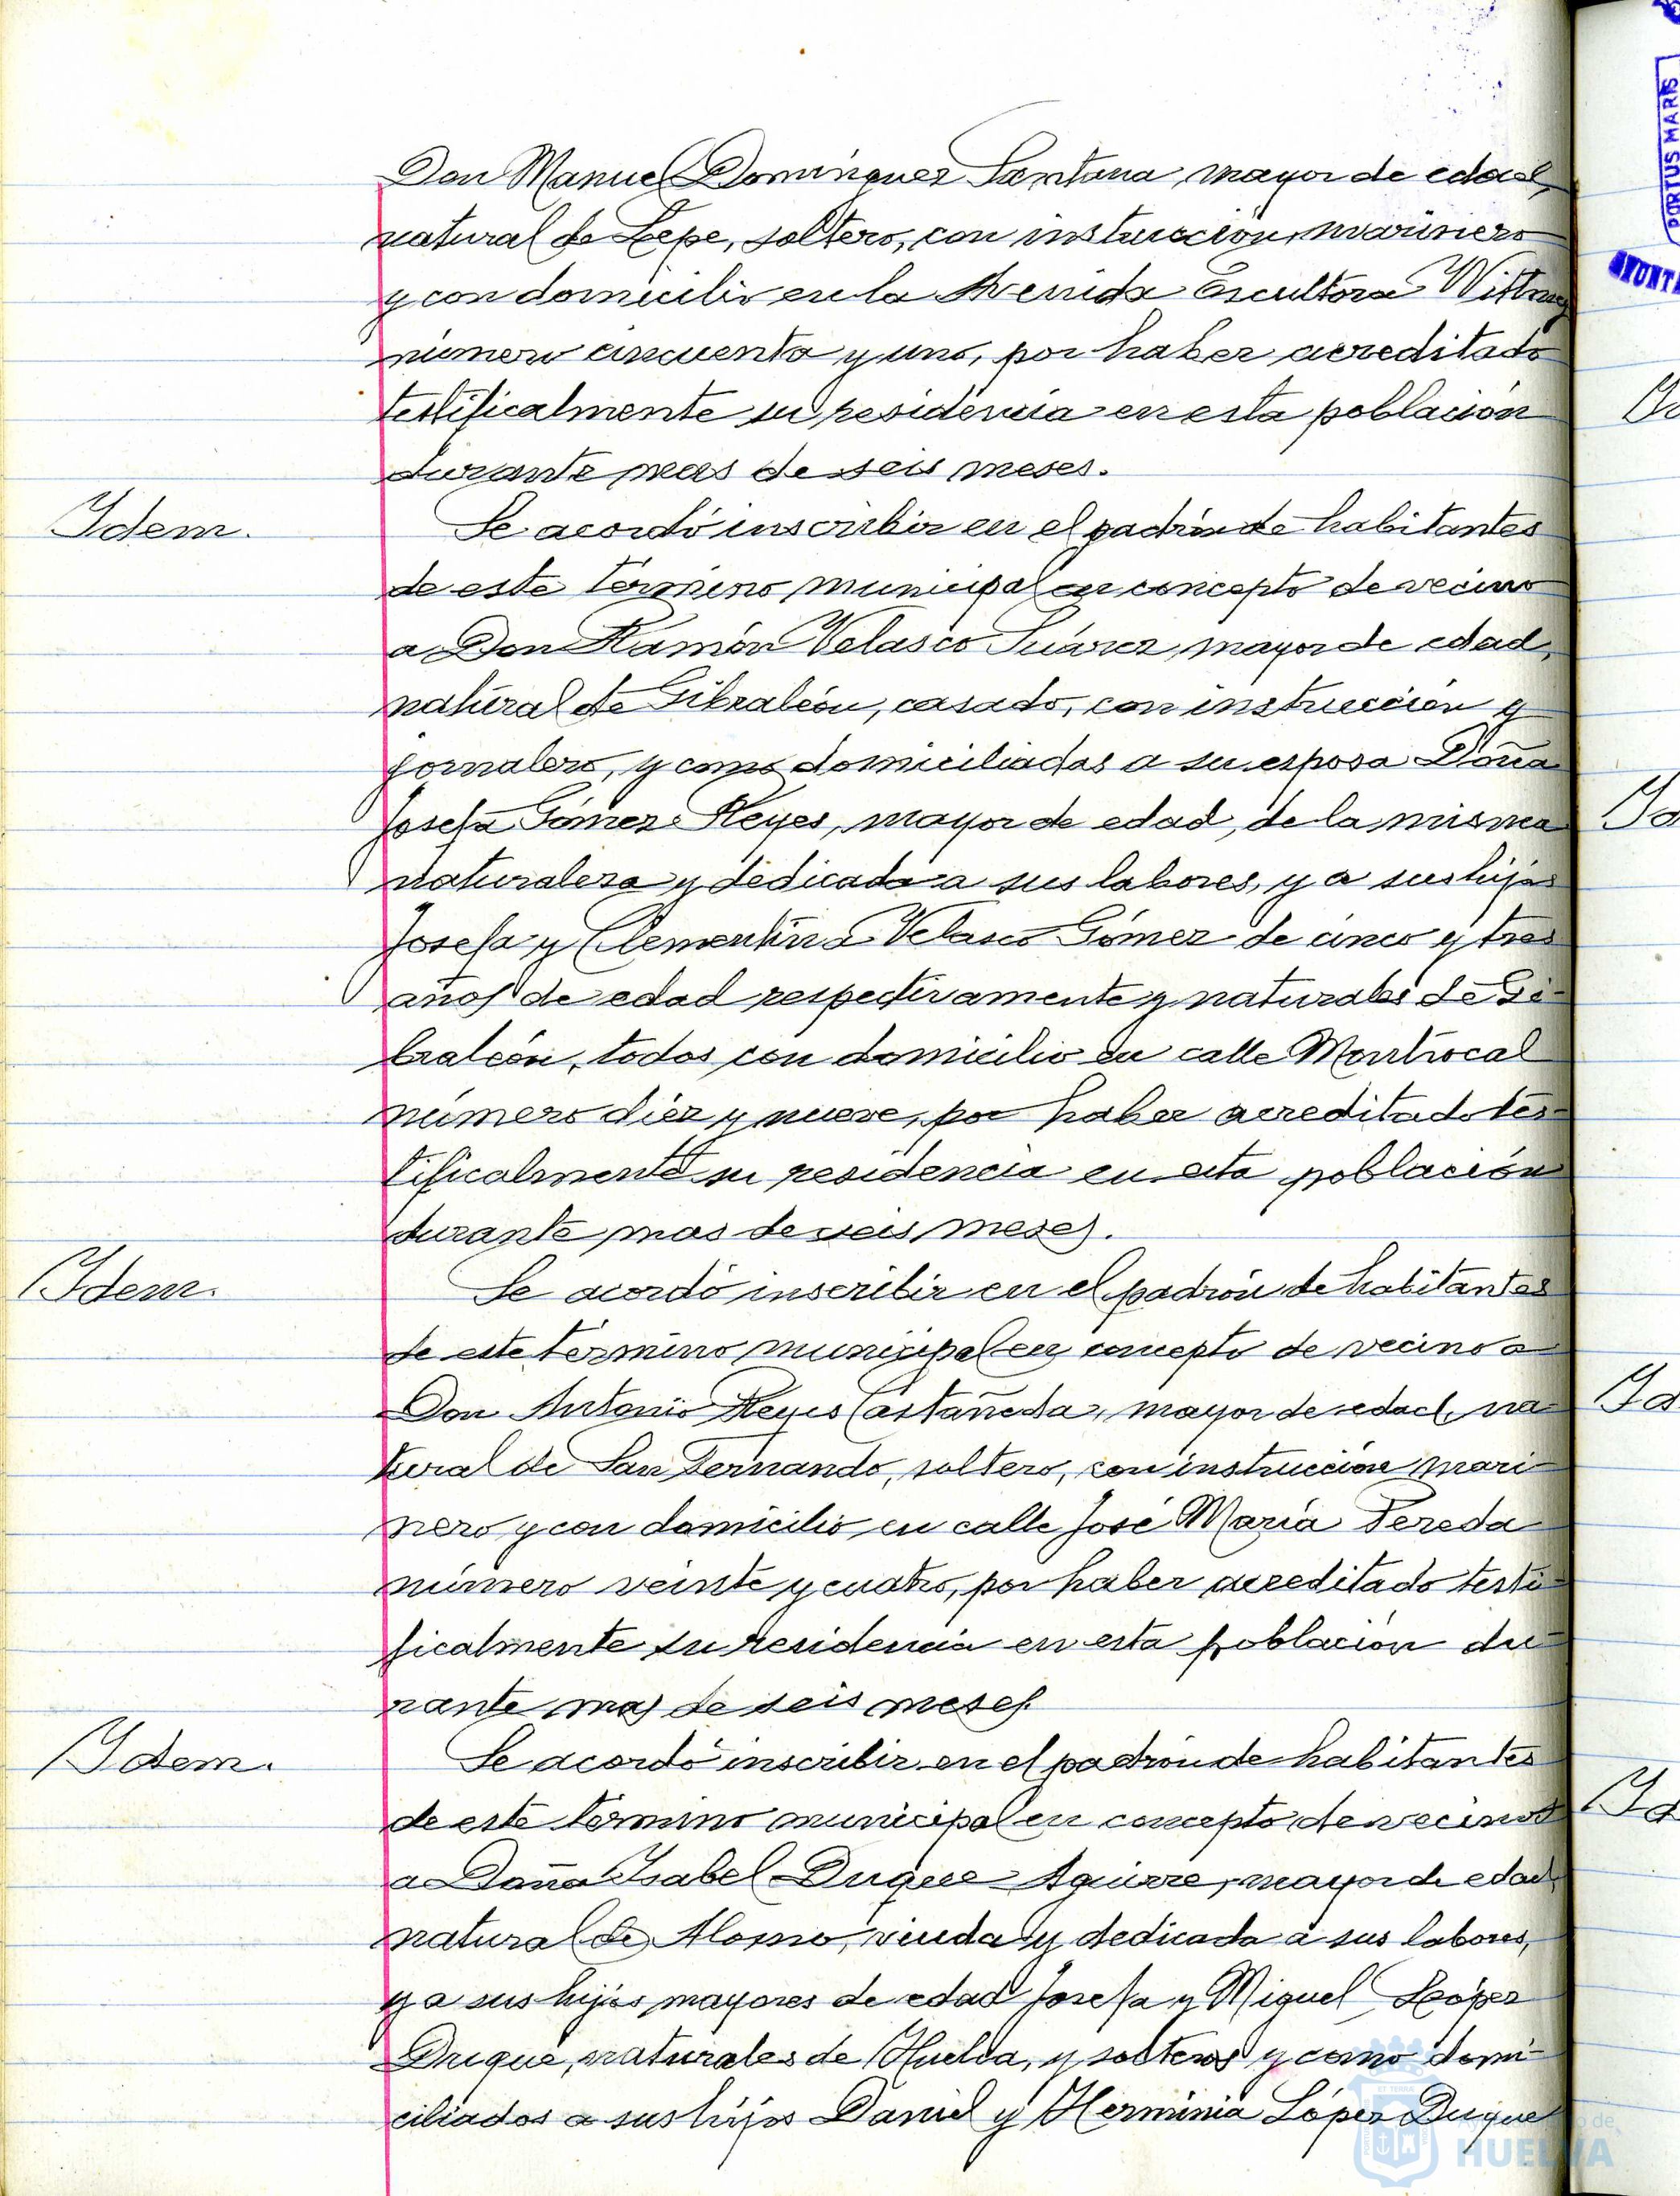 Don Manuel Dominguez Santana, mayor de edad,
natural de Lepe, soltero, con instruccion, marinero
y con domicilio en la Avenida Escultora Witney
número cincuenta y uno, por haber acreditado
testificalmente su residencia en esta población
durante mas de seis meses.
Idem.
Se acordó inscribir en el padrón de habitantes
de este término municipal en concepto de vecino
a Don Ramón Velasco Suárez, mayor de edad,
natural de Gibraleón, casado, con instrucción y
jornalero, y como domiciliadas a su esposa Doña
Josefa Gómez Reyes, mayor de edad, de la misma
naturaleza y dedicada a sus labores, y a sus hijas
Josefa y Clementina Velasco Gómez de cinco y tres
años de edad respectivamente y naturales de Gi-
braleón, todos con domicilio en calle Montrocal
número diez y nueve, por haber acreditado tes-
tificalmente su residencia en esta población
durante mas de seis meses.
Idem.
Se acordó inscribir en el padrón de habitantes
de este término municipal en concepto de vecino a
Don Antonio Reyes Castañeda, mayor de edad, na-
tural de San Fernando, soltero, con instrucción mari-
nero y con domicilio en calle José María Pereda
número veinte y cuatro, por haber acreditado testi-
ficalmente su residencia en esta población du-
rante mas de seis meses.
Idem.
Se acordó inscribir en el padrón de habitantes
de este término municipal en concepto de vecinos
a Doña Isabel Duque Aguirre, mayor de edad,
natural de Alosno, viuda y dedicada a sus labores,
y a sus hijos mayores de edad Josefa y Miguel López
Duque, naturales de Huelva, y solteros y como domi-
ciliados a sus hijos Daniel y Herminia López Duque
PORTUS MARIS
AYUNTA
Ayuntamiento de
HUELVA